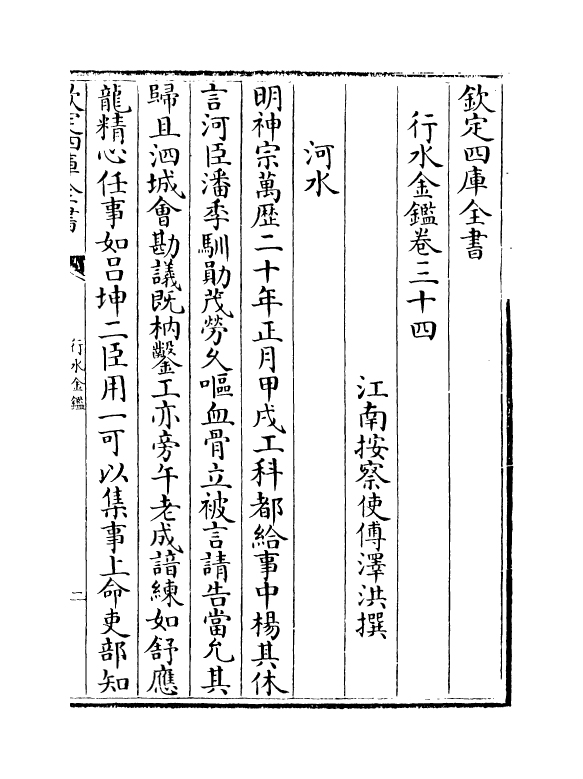 欽定四庫全書
行水金鑑卷三十四
江南按察使傅澤洪撰
河水
明神宗萬歴二十年正月甲戌工科都給事中楊其休
言河臣潘季馴勛茂勞久嘔血骨立被言請告當允其
歸且泗城會勘議既枘鑿工亦旁午老成諳練如舒應
龍精心任事如吕坤二臣用一可以集事上命吏部知
欽定四庫全書
行水金鑑
二